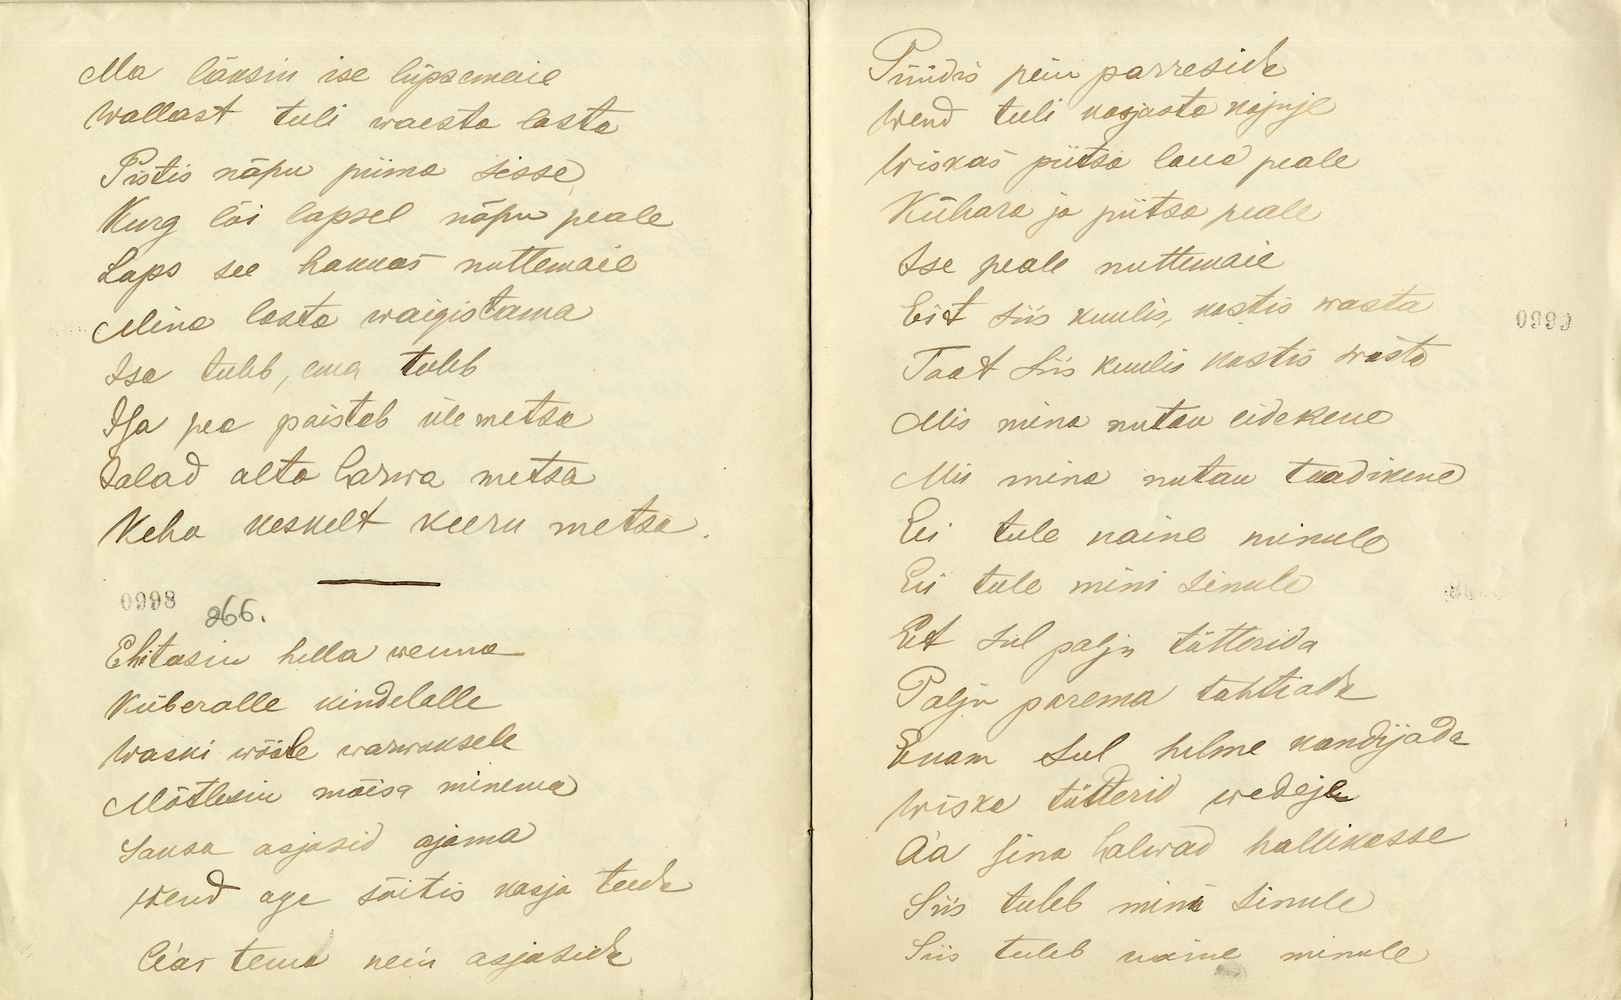 Ma läksin ise lüpsemaie
Wallast tuli waesta lasta
Pistis näpu piima sisse
Kurg lõi lapsel näpu peale
Laps see hakkas nuttemaie
Mina lasta waigistama
Isa tuleb, ema tuleb
Isa pea paistab üle metsa
Jalad alta harwa metsa
Keha keskelt keeru metsa.
0998
266.
Ehitasin hella wenna
Küberalle kindelalle
Waski wööle warwuksele
Mõtlesin mõisa minema
Saksa asjasid ajama
Wend aga sõitis kasja teede
Aas tema neiu asjaside
Püüdis peiu parreside
Wend tuli kosjasta kojuje
Wiskas piitsa laua peale
Kühara ja piitsa peale
Ise peale nuttemaie
Eit siis kuulis, kostis wasta
Taat siis kuulis kostis wasta
0999
Mis mina nutan eidekene
Mis mina nutan taadikene
Ei tule naine minule
Ei tule mini sinule
Et sul palju tütterida
Palju parema tahtiade
Enam sul helme kandijada
Wiska tütterid wedeje
Aa sina halwad hallikasse
Siis tuleb mini sinule
Siis tuleb naine minule